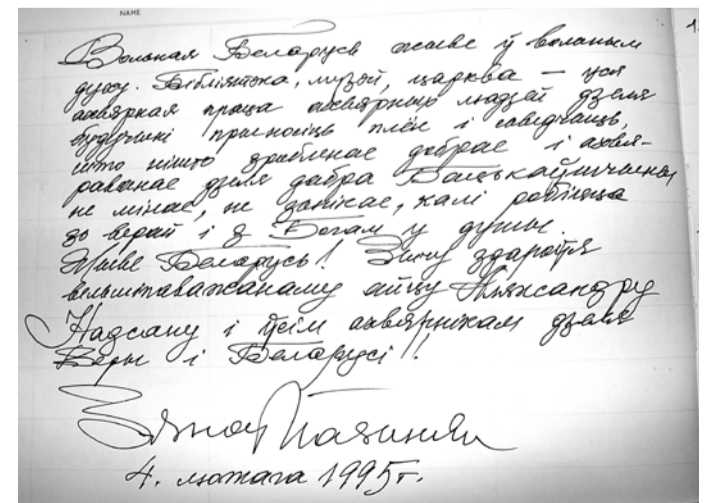 NAME
1
Вольная Беларусь жыве ў вольным
духу. Бібліятэка, музэй, царква — уся
ахвярная праца ахвярных людзей дзеля
будучыні прыносіць плён і сьведчыць,
што нішто зробленае добрае і ахвя-
раванае дзеля дабра Бацькаўшчыны
не мінае, не занікае, калі робіцца
зь верай і з Богам у душы.
Жыве Беларусь! Зычу здароўя
вельмішаваженаму айцу Аляксандру
Надсану і ўсім ахвярнікам дзеля
Веры і Беларусі!
Зянон Пазьняк
4. лютага 1995 г.